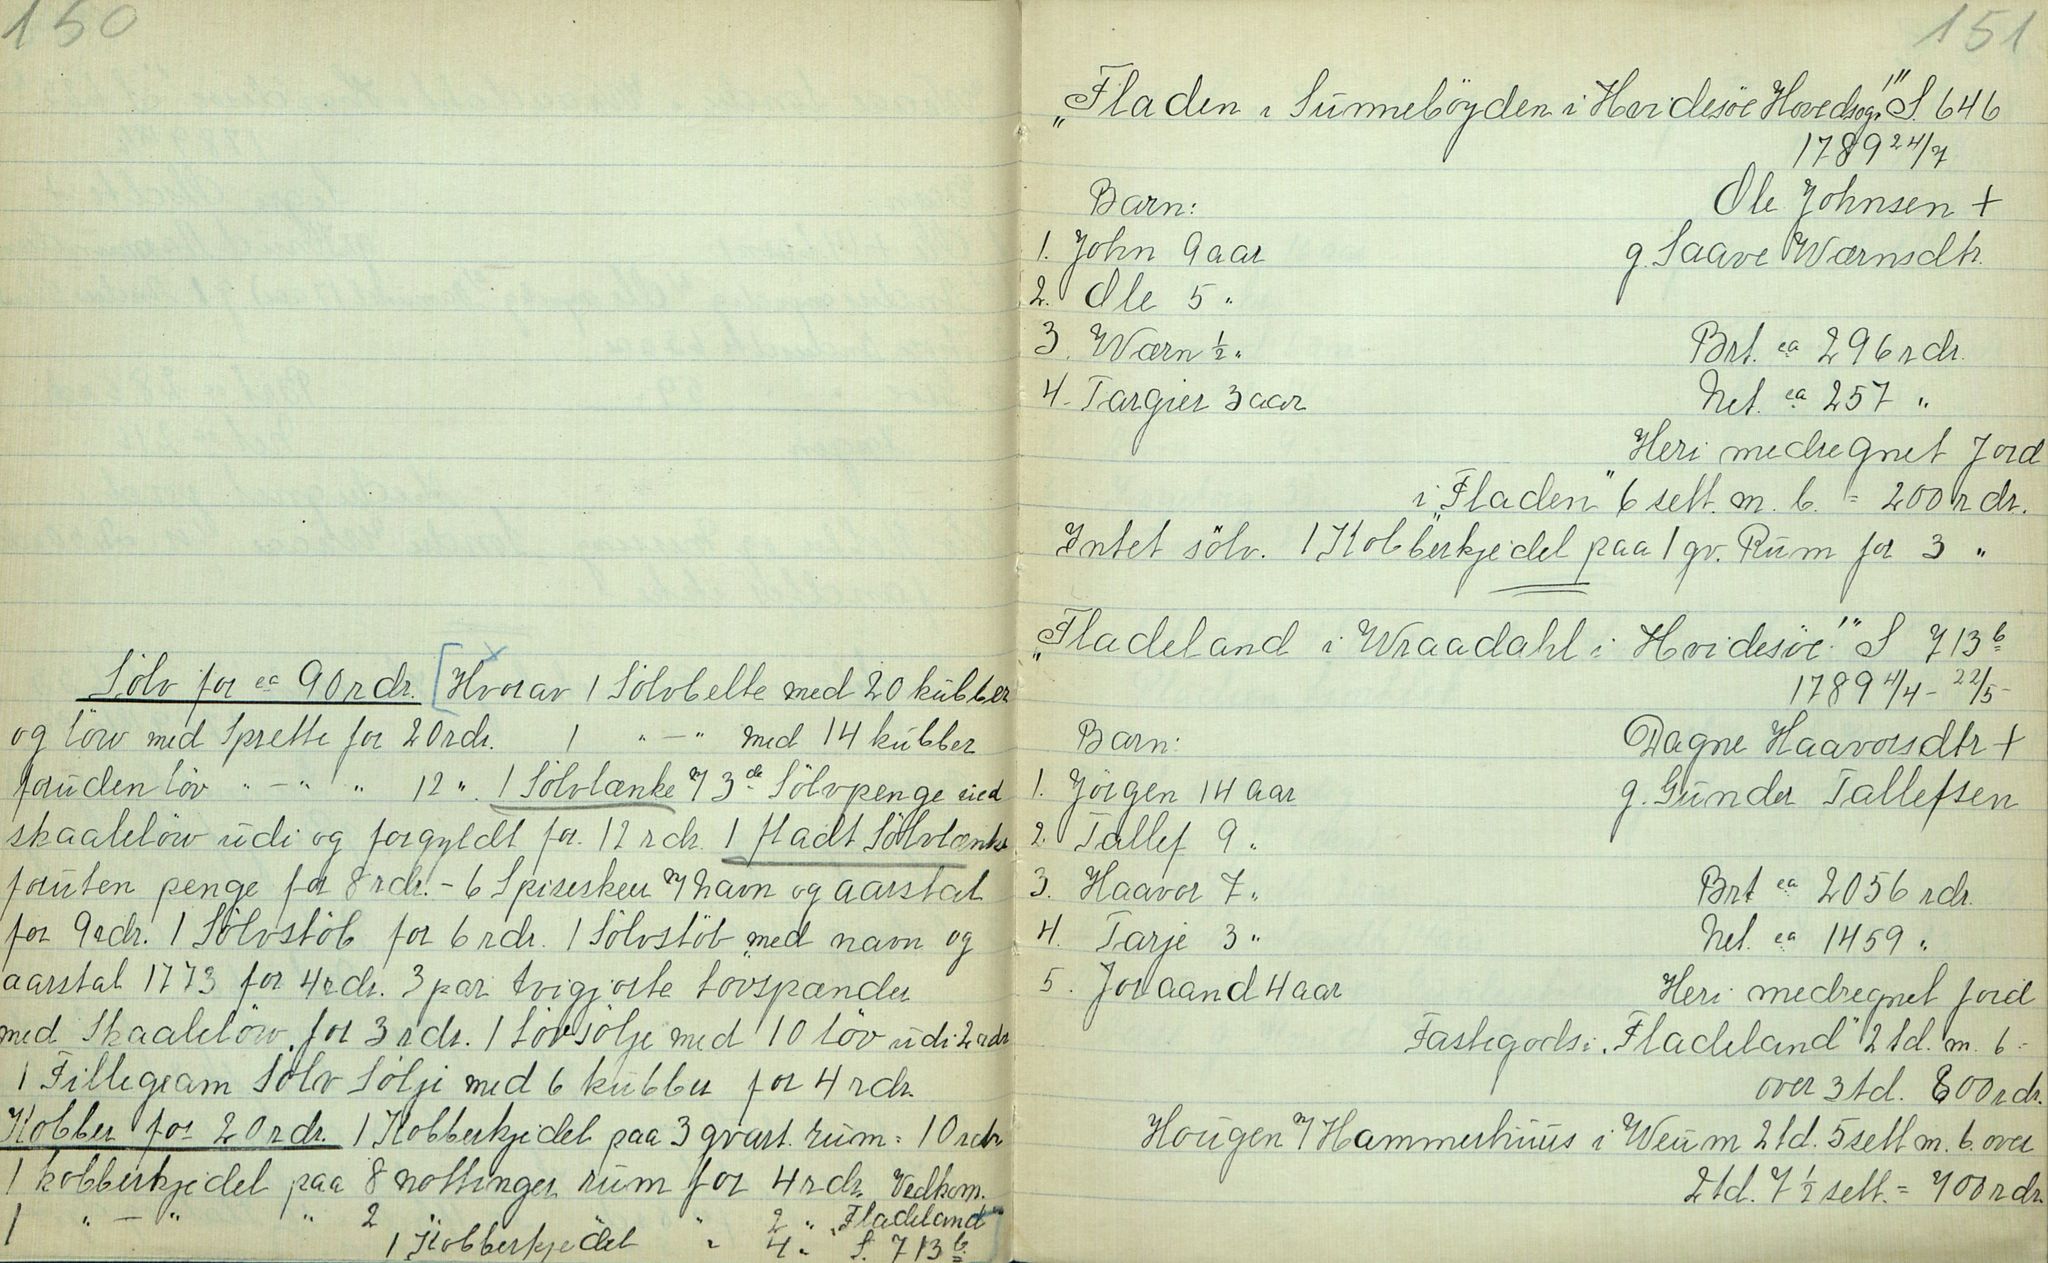 150
Sölv for ca 90 rdr. [Hvorav 1 Sölvbelte med 20 kubber
og löw med Sprette for 20 rdr. 1 " — " med 14 kubber
foruden löv " — " " 12 ". 1 Sölvlænke 3 de Sölvpenge ved
skaalelöw udi og forgyldt for 12 rdr. 1 fladt Sölvlænke
foruten penge for 8 rdr. - 6 Spiseskeer navn og aarstal
for 9 rdr. 1 Sölvstöb for 6 rdr. 1 Sölvstöb med navn og
aarstal 1773 for 4 rdr. 3 par tvigjorte lövspænder
med Skaalelöw for 3 rdr. 1 Söv sölje med 10 löv udi 2 rdr
1 Fillegram Sölv Sölje med 6 kubber for 4 rdr.
Kobber for 20 rdr. 1 Kobberkjedel paa 3 qvart. rum = 10 rdr
1 kobberkjedel paa 8 nottinger rum for 4 rdr. Vedkom.
1 " — " " 2 " " 2 " "Fladeland"
1 Kobberkjedel " 4 " S. 713 b
151
"Fladen i Sunneböyden i Hvidesöe Hovedsogn" S. 646
1789 24/7
Barn: Ole Johnsen +
1. John 9 aar g. Saave Wærnsdtr.
2. Ole 5 "
3. Wærn 1/2 " Brt. ca 296 rdr.
4. Targier 3 aar Net. ca 257 "
Heri medregnet Jord
i "Fladen" 6 sett. m. b. = 200 rdr.
Intet sölv. 1 Kobberkjedel paa 1 qv. Rum for 3 "
"Fladeland i Wraadahl i Hvidesöe" S 713 b
1789 4/4 - 22/5 -
Barn: Dagne Haavorsdtr +
1. Jörgen 14 aar g. Gunder Tallefsen
2. Tallef 9 "
3. Haavor 7 " Brt ca 2056 rdr.
4. Tarje 3 " Net. ca 1459 "
5. Joraand 4 aar Heri medregnet jord
Fastegods i "Fladeland" 2 td. m. b. -
over 3 td. 800 rdr.
Hougen Hammerhuus i Weum 2 td. 5 sett m. b. over
2 td. 7 1/2 sett. = 700 rdr.